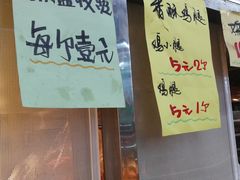 每个壹元
香酥鸡腿
鸡小腿
5元2个
鸡腿
5元1个